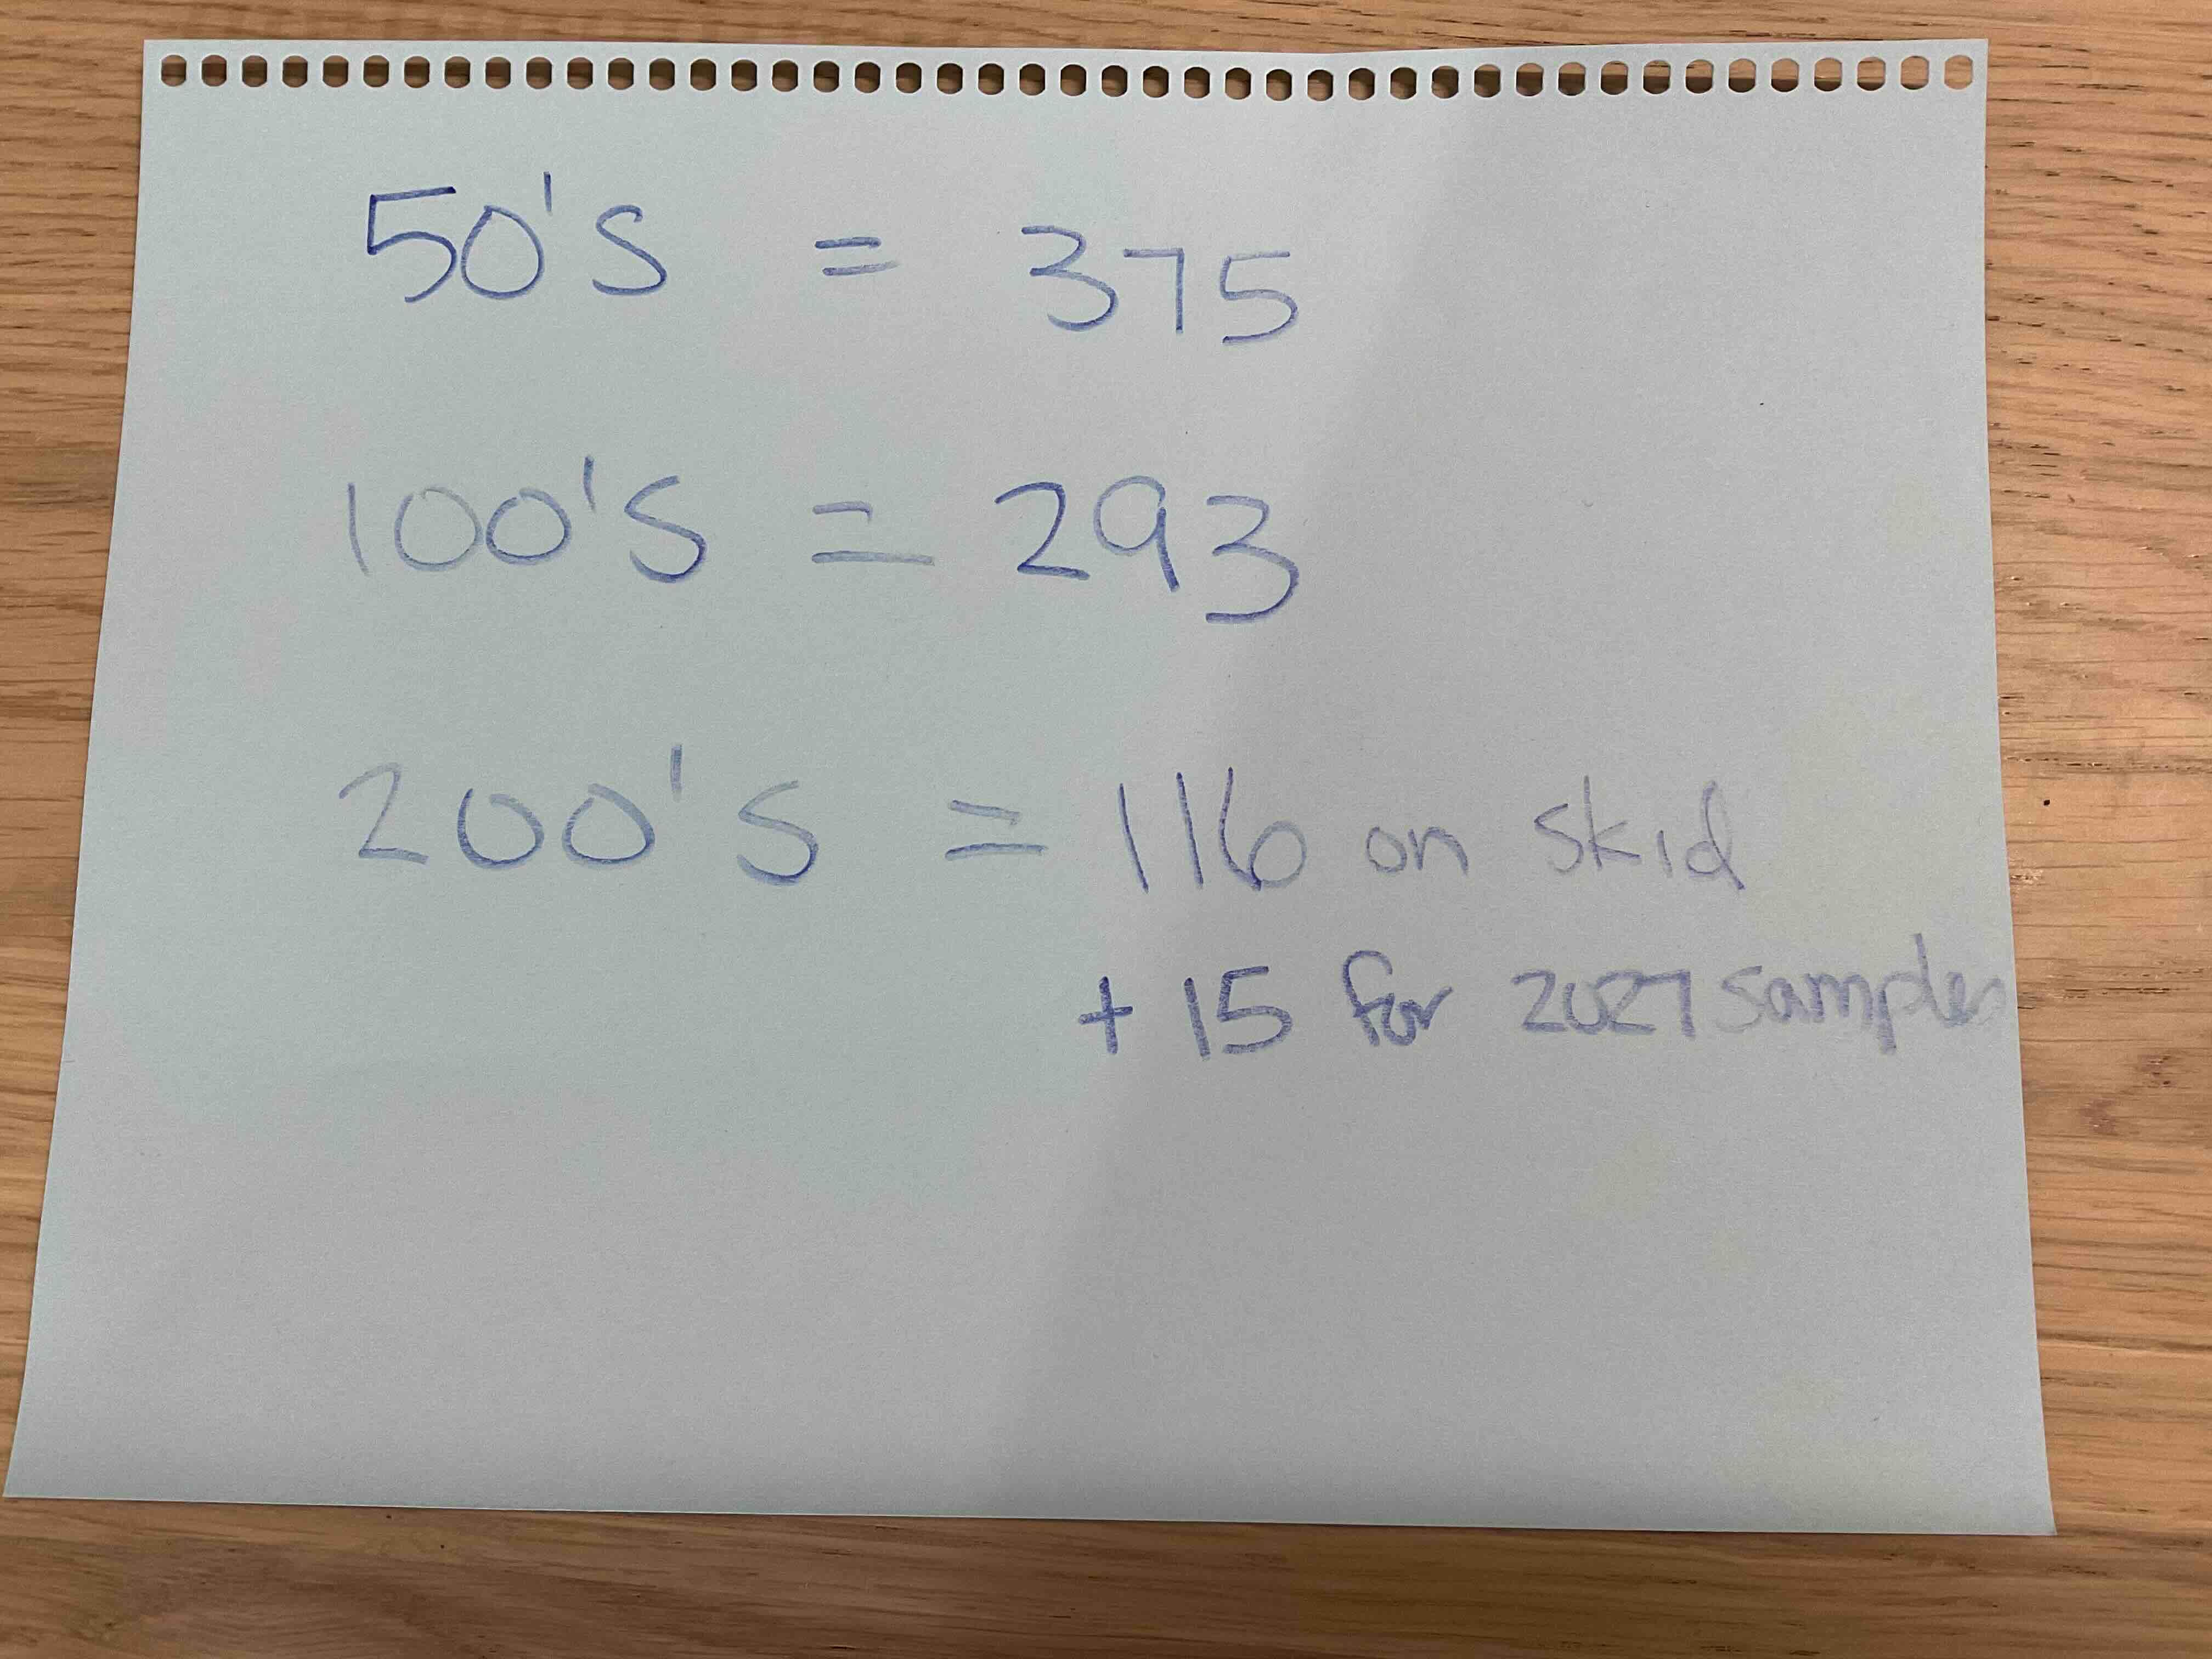 50's = 375
100's = 293
200's = 116 on skid
+ 15 for 2027 samples